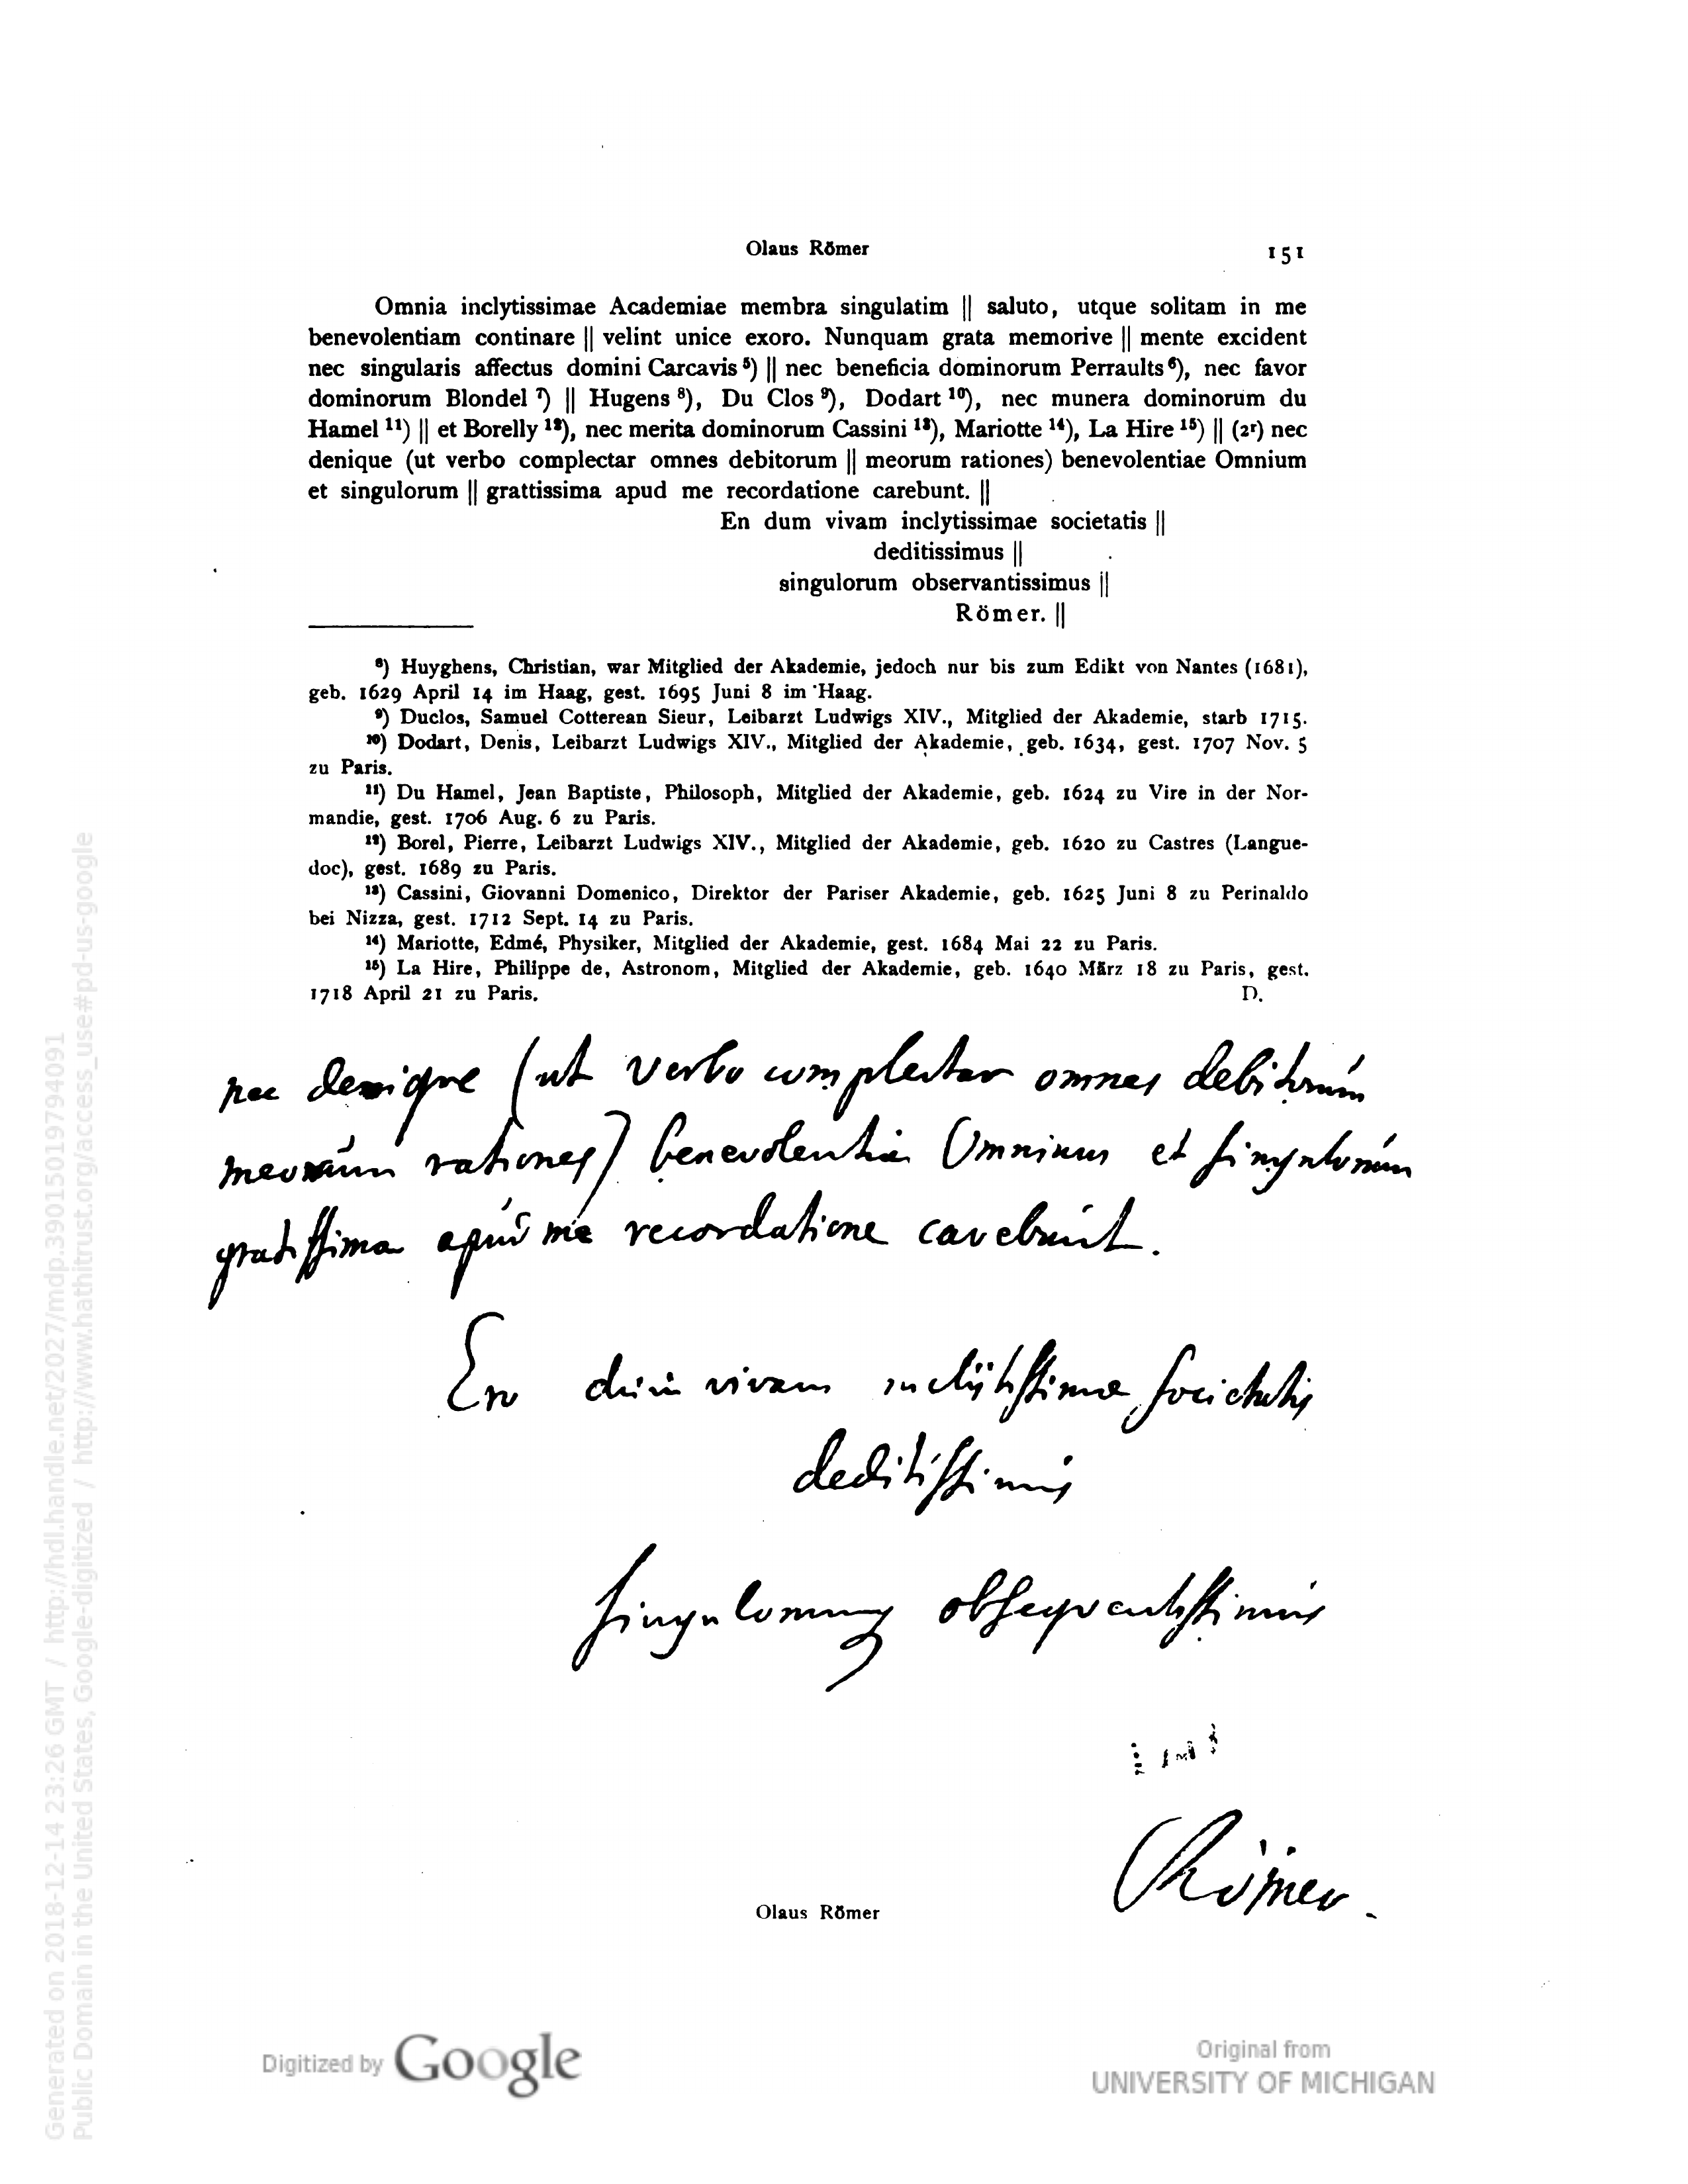 Olaus Römer 151
Omnia inclytissimae Academiae membra singulatim || saluto, utque solitam in me
benevolentiam continare || velint unice exoro. Nunquam grata memorive || mente excident
nec singularis affectus domini Carcavis ⁵) || nec beneficia dominorum Perraults ⁶), nec favor
dominorum Blondel ⁷) || Hugens ⁸), Du Clos ⁹), Dodart ¹⁰), nec munera dominorum du
Hamel ¹¹) || et Borelly ¹²), nec merita dominorum Cassini ¹³), Mariotte ¹⁴), La Hire ¹⁵) || (2ʳ) nec
denique (ut verbo complectar omnes debitorum || meorum rationes) benevolentiae Omnium
et singulorum || grattissima apud me recordatione carebunt. ||
En dum vivam inclytissimae societatis ||
deditissimus ||
singulorum observantissimus ||
Römer. ||
⁸) Huyghens, Christian, war Mitglied der Akademie, jedoch nur bis zum Edikt von Nantes (1681),
geb. 1629 April 14 im Haag, gest. 1695 Juni 8 im Haag.
⁹) Duclos, Samuel Cotterean Sieur, Leibarzt Ludwigs XIV., Mitglied der Akademie, starb 1715.
¹⁰) Dodart, Denis, Leibarzt Ludwigs XIV., Mitglied der Akademie, geb. 1634, gest. 1707 Nov. 5
zu Paris.
¹¹) Du Hamel, Jean Baptiste, Philosoph, Mitglied der Akademie, geb. 1624 zu Vire in der Nor-
mandie, gest. 1706 Aug. 6 zu Paris.
¹²) Borel, Pierre, Leibarzt Ludwigs XIV., Mitglied der Akademie, geb. 1620 zu Castres (Langue-
doc), gest. 1689 zu Paris.
¹³) Cassini, Giovanni Domenico, Direktor der Pariser Akademie, geb. 1625 Juni 8 zu Perinaldo
bei Nizza, gest. 1712 Sept. 14 zu Paris.
¹⁴) Mariotte, Edmé, Physiker, Mitglied der Akademie, gest. 1684 Mai 22 zu Paris.
¹⁵) La Hire, Philippe de, Astronom, Mitglied der Akademie, geb. 1640 März 18 zu Paris, gest.
1718 April 21 zu Paris. D.
nec denique (ut verbo complectar omnes debitorum
meorum rationes) benevolentiæ Omnium et singulorum
gratissima apud me recordatione carebunt.
En dum vivam inclÿtissimæ societatis
deditissimus
singulorumq obsequentissimus
Römer.
Olaus Römer
Digitized by Google
Original from
UNIVERSITY OF MICHIGAN
Generated on 2018-12-14 23:26 GMT / http://hdl.handle.net/2027/mdp.39015019794091
Public Domain in the United States, Google-digitized / http://www.hathitrust.org/access_use#pd-us-google